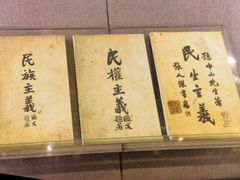 民族主義
孫文題署
民權主義
孫文題署
孫中山先生著
民生主義
張人傑書耑